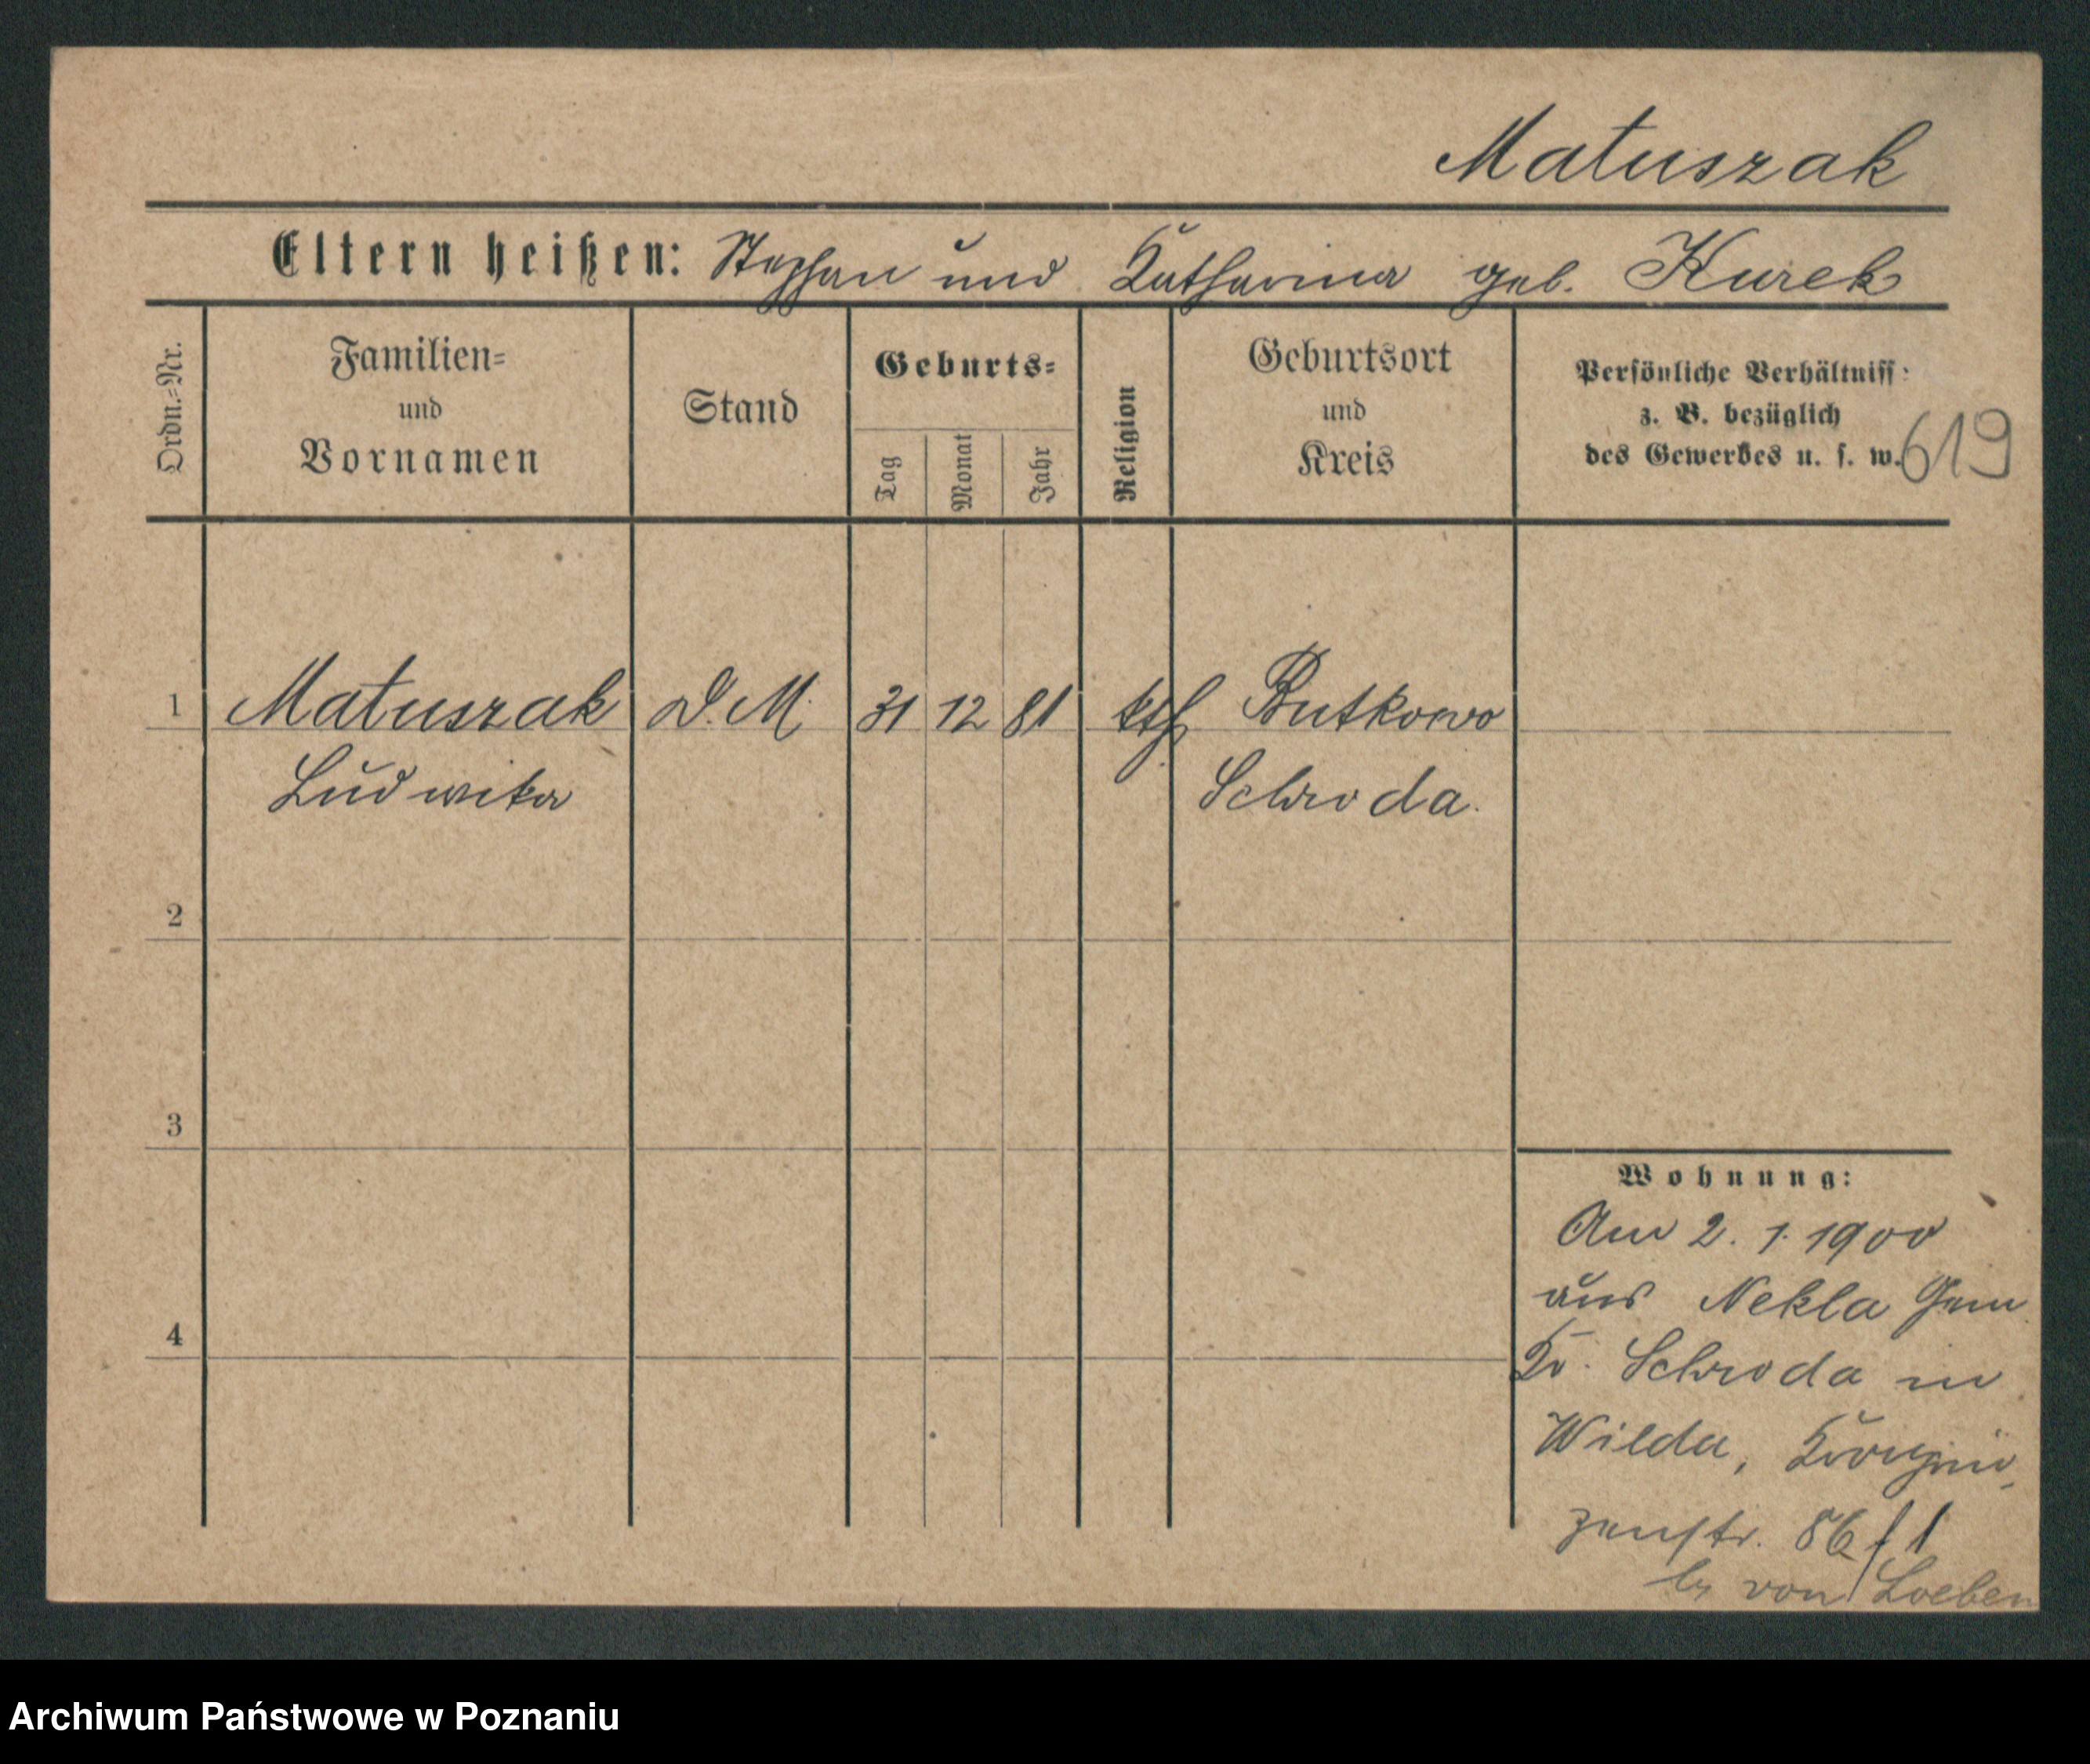 Matuszak
Eltern heißen: Stephan und Katharina geb. Kurek
Ordn.=Nr.
Familien=
und
Vornamen
Stand
Geburts=
Tag
Monat
Jahr
Religion
Geburtsort
und
Kreis
Persönliche Verhältniss:
z. B. bezüglich
des Gewerbes u. s. w.
619
1 Matuszak D.M. 31 12 81 kth Rutkowo
Ludwika Schroda.
2
3
4
Wohnung:
Am 2. 1. 1900
aus Nekla Gem
Kr. Schroda in
Wilda, Kronprin,
zenstr. 86 f 1
by von Loeben
Archiwum Państwowe w Poznaniu